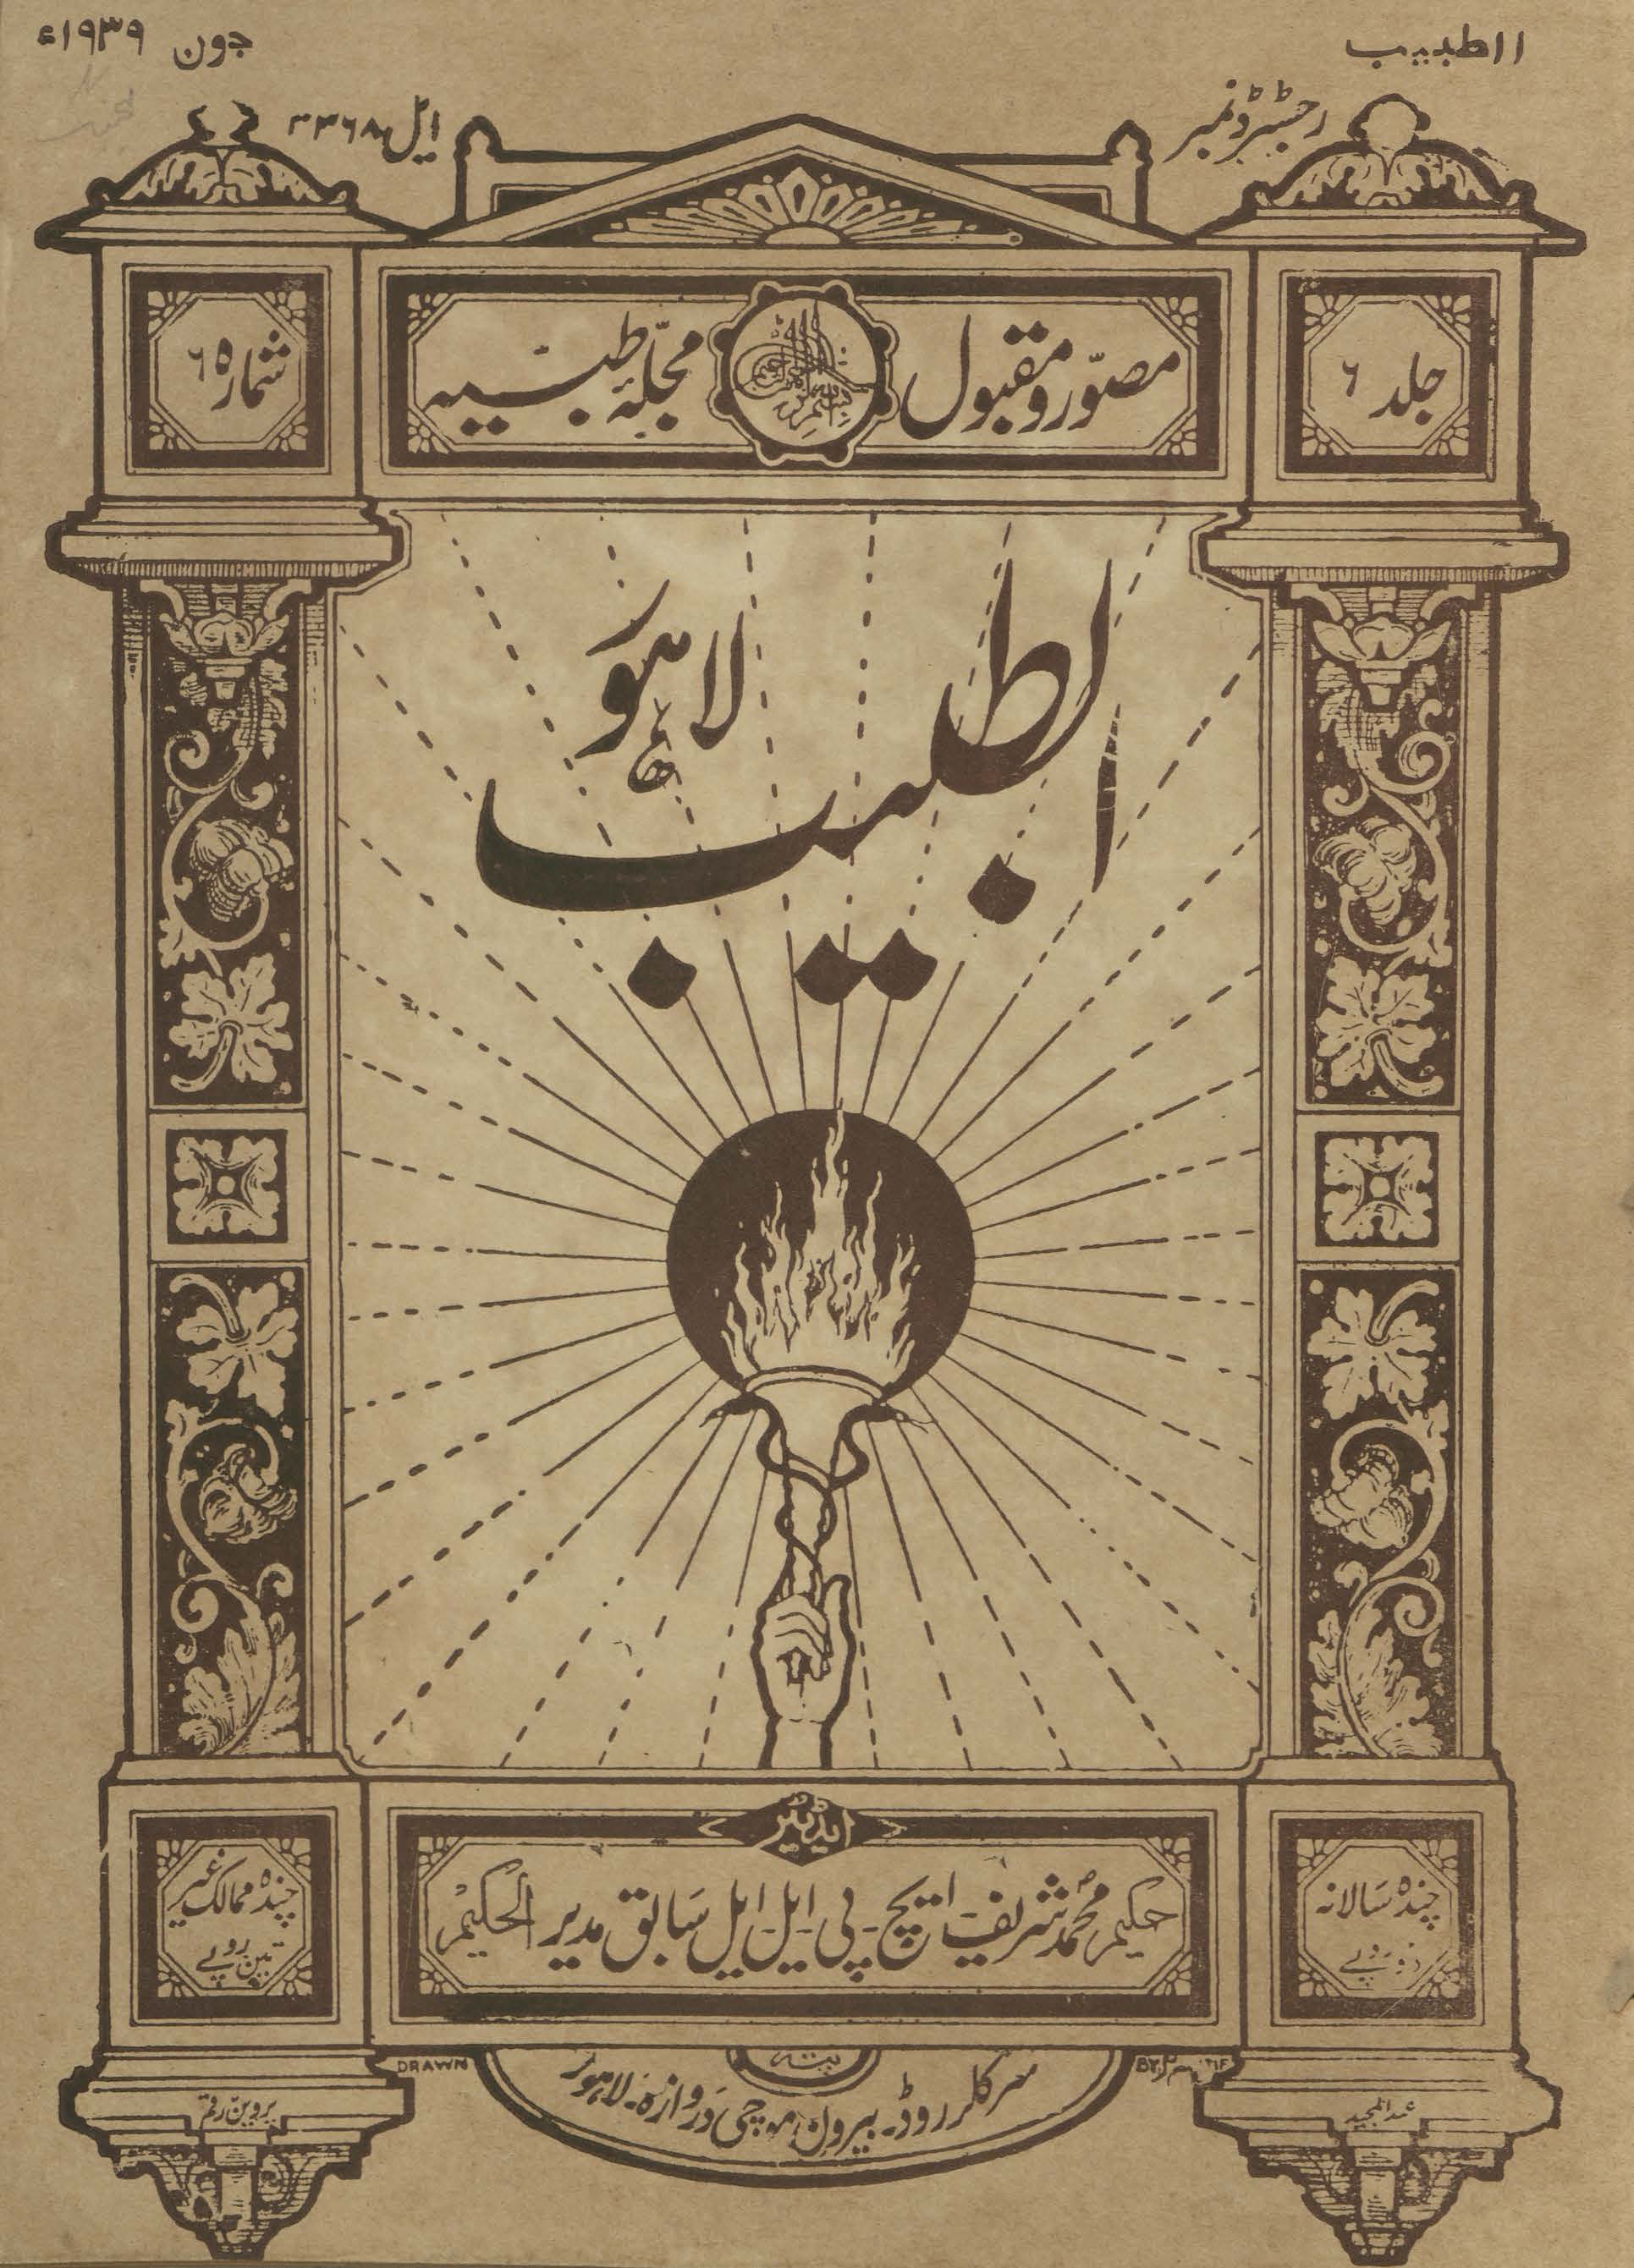 الطبیب
جون ۱۹۳۹ء
رجسٹرڈ نمبر
ایل ۳۳۶۸
جلد ۶
مصوّر و مقبول
مجلّۂ طبّیہ
شمارہ ۶
الطبیب
لاہور
ایڈیٹر
حکیم محمد شریف ایچ۔ پی۔ ایل۔ ایل سابق مدیر الحکیم
چندہ سالانہ
دو روپے
چندہ ممالک غیر
تین روپے
DRAWN
BY
پتہ
سرکلر روڈ۔ بیرون موچی دروازہ۔ لاہور
عبدالمجید
پروین رقم